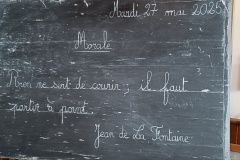 Mardi 27 mai 2025
Morale
Rien ne sert de courir ; il faut
partir à point.
Jean de La Fontaine